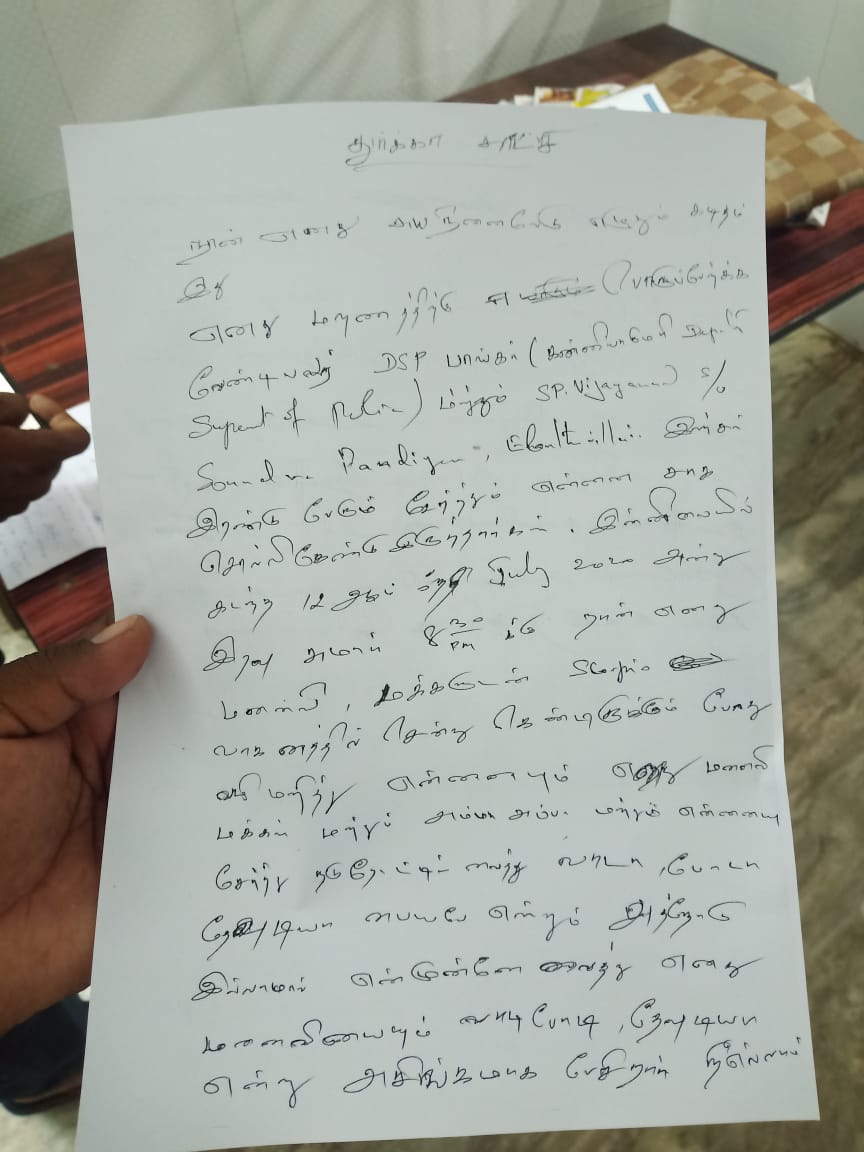 துர்க்கா சாட்சி
நான் எனது சுய நினைவோடு எழுதும் கடிதம்
இது
எனது மரணத்திற்கு பொறுப்பேற்க்க
வேண்டியவர் DSP பாஸ்கர் (கன்னியாகுமரி
of Police) மற்றும் SP. Vijayanand S/o
Soundra Pandiyan, இவர்கள்
இரண்டு பேரும் சேர்ந்து என்னை சாக
சொல்லிகொண்டு இருந்தார்கள். இந்நிலையில்
கடந்த 12 ஆம் July 2020 அன்று
இரவு சுமார் 8 30 PM க்கு நான் எனது
மனைவி, மக்களுடன் Scorpio
வாகனத்தில் சென்று கொண்டிருக்கும் போது
வழி மறித்து என்னையும் எனது மனைவி
மக்கள் மற்றும் அம்மா அப்பா மற்றும் என்னையு
சேர்ந்து நடுரோட்டில் வைத்து வாடா, போடா
தேவுடியா பையலே என்றும் அத்தோடு
இல்லாமல் என்முன்னே வைத்து எனது
மனைவியையும் வாடி போடி, தேவுடியா
என்று அசிங்கமாக பேசினார் நீஎல்லாம்